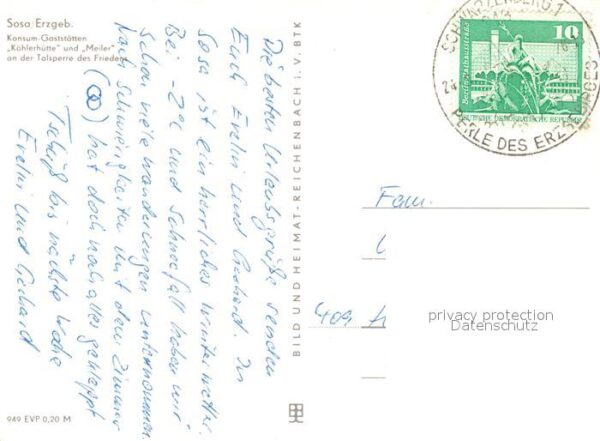 Sosa Erzgeb.
Konsum-Gaststätten
„Köhlerhütte" und „Meiler"
an der Talsperre des Friedens
Die besten Urlaubsgrüße senden
Euch Evelin und Gerhard. In
Sosa ist ein herrliches Winterwetter.
Bei -2°C und Schneefall haben wir
schon viele Wanderungen unternommen.
Nach Schwierigkeiten mit dem Zimmer
hat doch noch alles geklappt
Tschüß bis nächste Woche
Evelin und Gerhard
949 EVP 0,20 M
BILD UND HEIMAT-REICHENBACH I. V. BTK
SCHWARZENBERG 1
PERLE DES ERZGEBIRGES
10
Berlin, Rathausstraße
DEUTSCHE DEMOKRATISCHE REPUBLIK
Fam.
409
privacy protection
Datenschutz